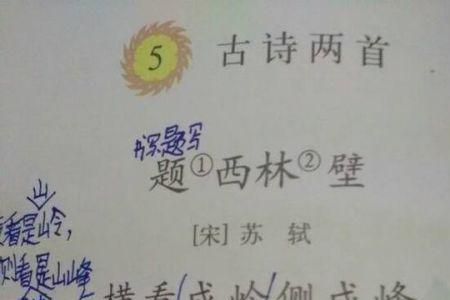 5 古诗两首
书写题写
题①西林②壁
[宋] 苏轼
山
看是岭，
则看是山峰
横看/成岭/侧成峰